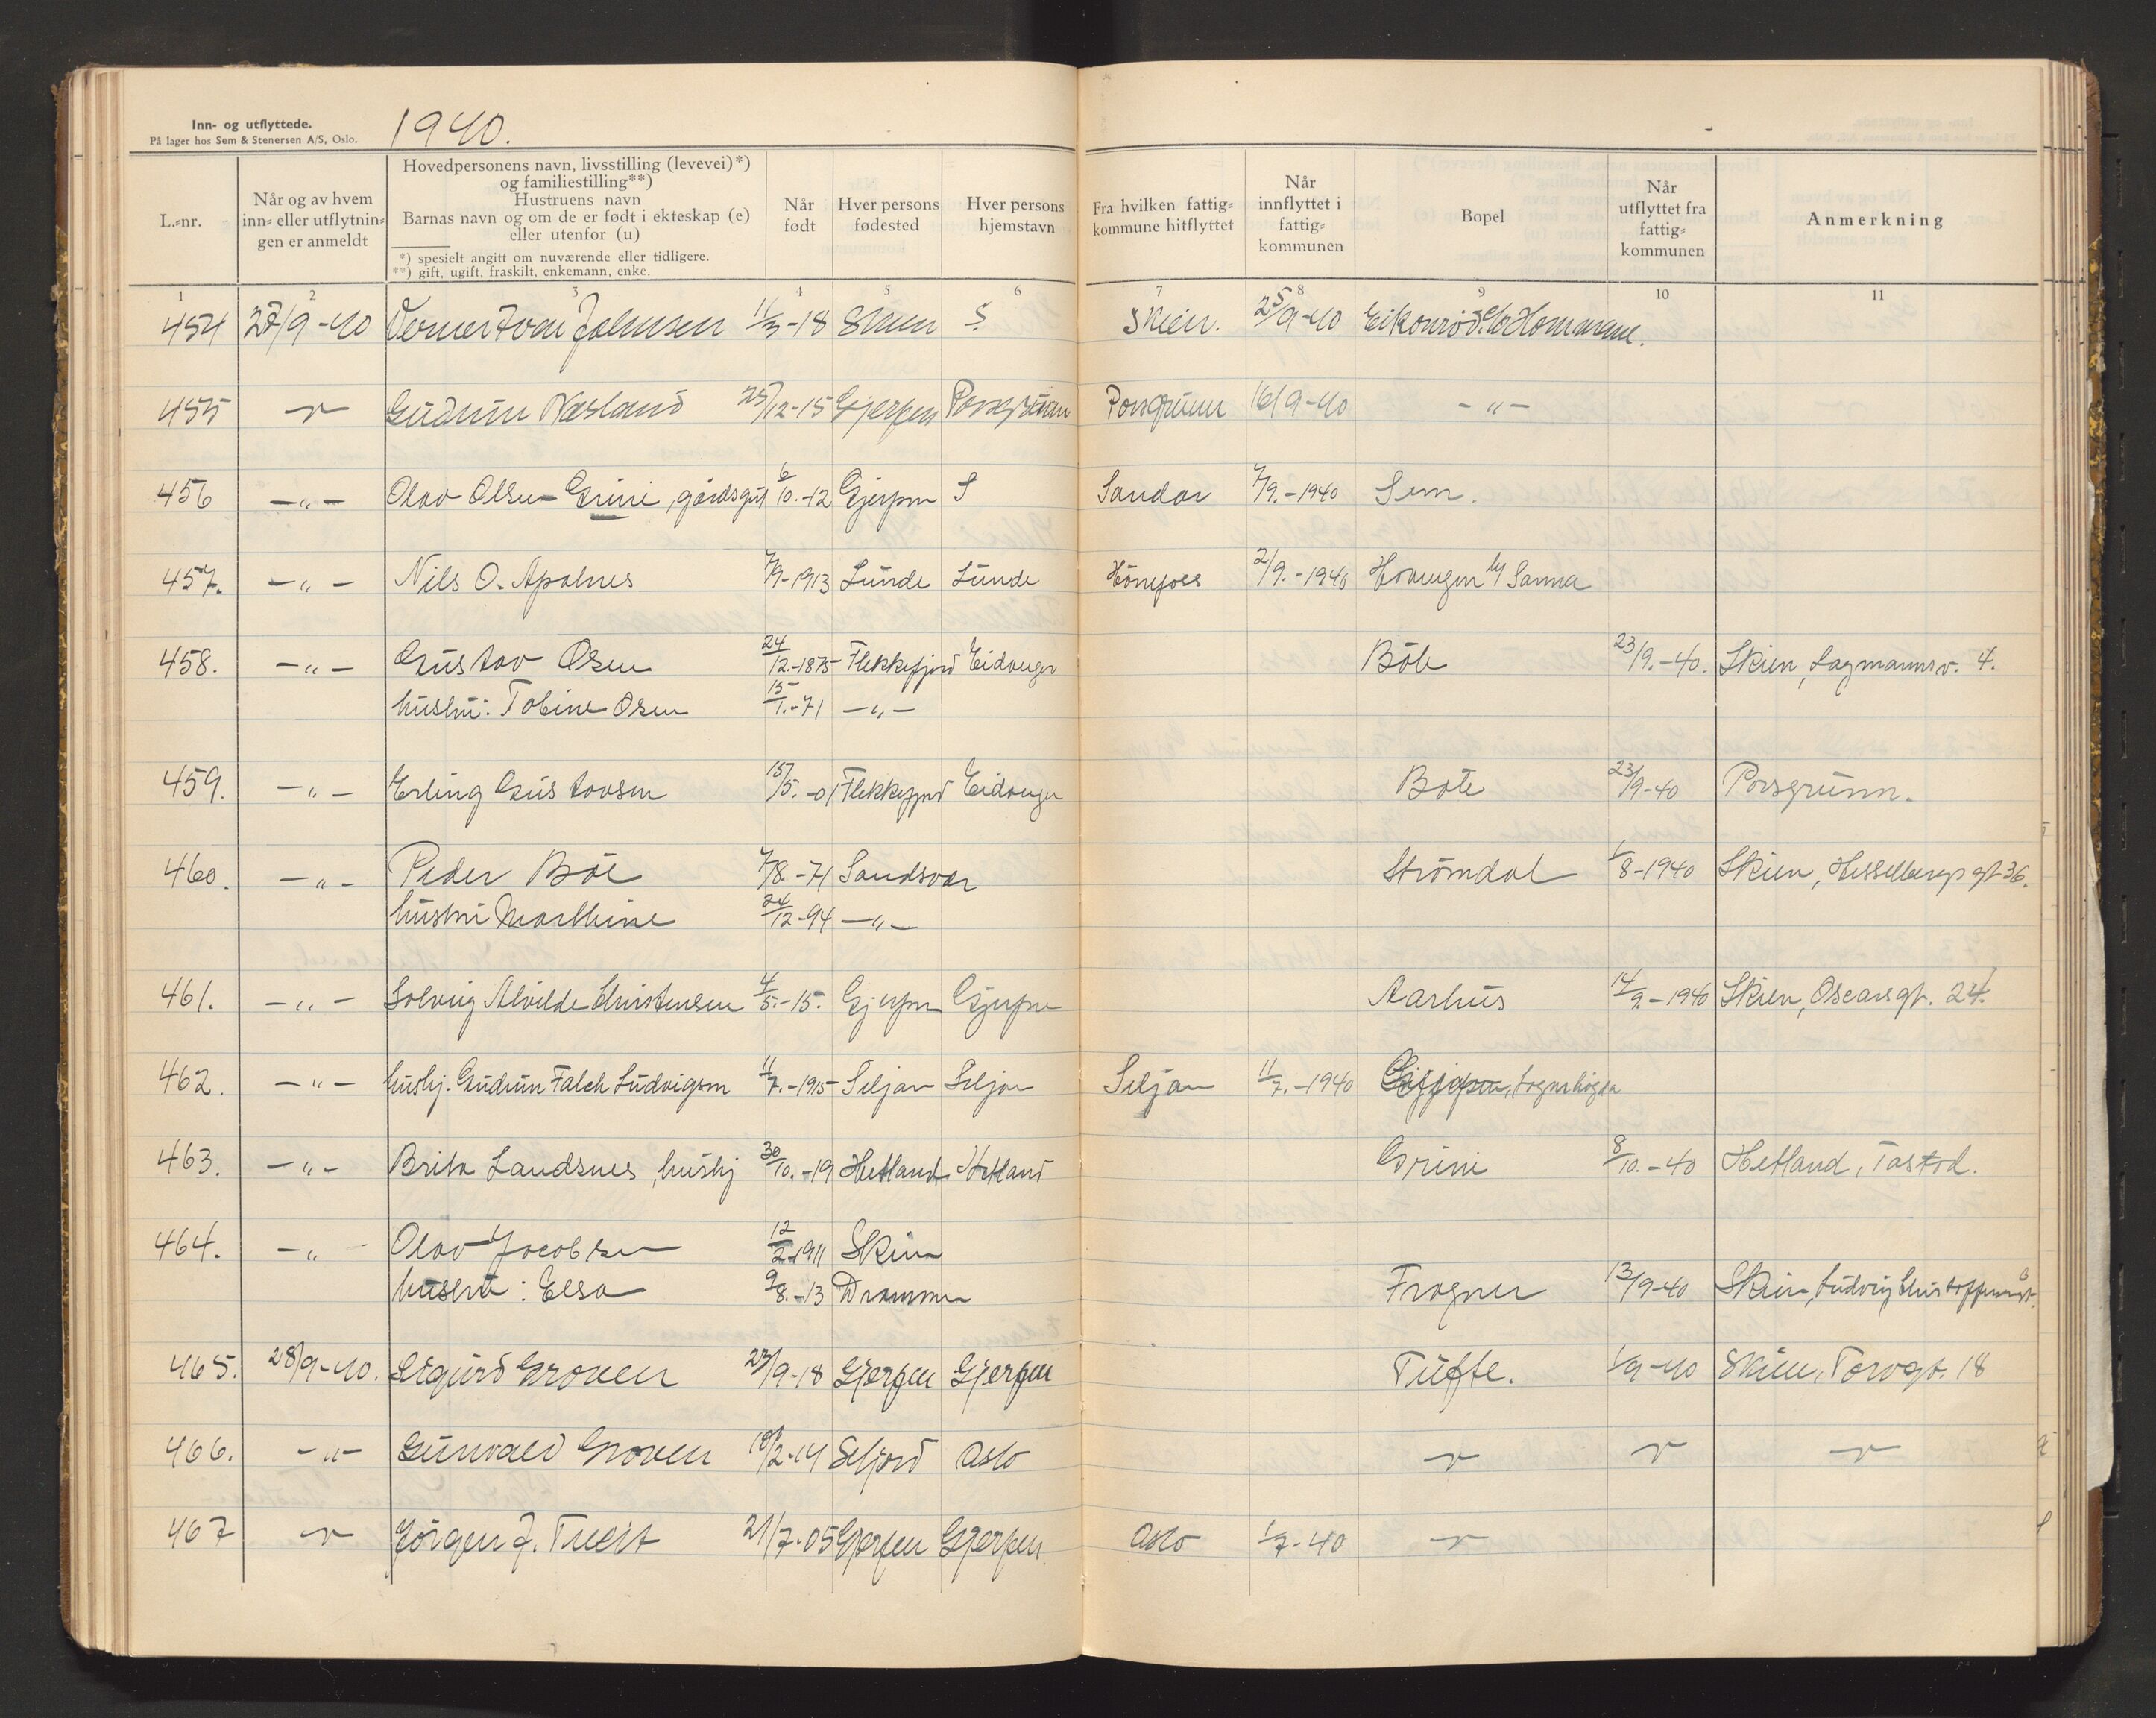 Inn- og utflyttede.
På lager hos Sem & Stenersen A/S, Oslo.
1940.
L.-nr.
Når og av hvem inn- eller utflytnin-gen er anmeldt
Hovedpersonens navn, livsstilling (levevei)*) og familiestilling**)
Hustruens navn
Barnas navn og om de er født i ekteskap (e) eller utenfor (u)
*) spesielt angitt om nuværende eller tidligere.
**) gift, ugift, fraskilt, enkemann, enke.
Når født
Hver persons fødested
Hver persons hjemstavn
Fra hvilken fattig-kommune hitflyttet
Når innflyttet i fattig-kommunen
Bopel
Når utflyttet fra fattig-kommunen
Anmerkning
1 2 3 4 5 6 7 8 9 10 11
454 28/9-40 Johnsen 11/3-18 Skien S Skien. 25/9-40
455 -"- Gudrun Næsland 25/12-15 Gjerpen Porsgrunn Porsgrunn 16/9-40 -"-
456 -"- Olav Olsen Grini, gårdsgut 6/10.-12 Gjerpen S Sandar 7/9.-1940 Sem.
457. -"- Nils O. Apalnes 7/9-1913 Lunde Lunde Hönefoss 2/9.-1940
458. -"- Gustav Osen 24/12.-1875 Flekkefjord Eidanger Böle 23/9.-40. Skien, Lagmannsv. 4.
hustru: Tobine Osen 15/1.-71 -"-
459. -"- Erling Gustavsen 15/5.-01 Flekkefjord Eidanger Böle 23/9-40 Porsgrunn.
460. -"- Peder Böe 7/8.-71 Sandsvær Strömdal 1/8-1940 Skien, Hesselbergs gt 36.
hustru Marthine 24/12-94 -"-
461. -"- Solveig Alvilde Christensen 4/5.-15. Gjerpen Gjerpen Aarhus 14/9.-1940 Skien, Oscarsgt. 24.
462. -"- hushj. Gudrun Falch Ludvigsen 11/7.-1915 Siljan Siljan Siljan 11/7.-1940
463. -"- Brita Landsnes, hushj 30/10.-19 Hetland Hetland Grini 8/10.-40 Hetland, Tastad.
464. -" Olav Jacobsen 12/2-1911 Skien
hustru: Elsa 9/8.-13 Drammen Frogner 13/9-40 Skien,
465. 28/9-40. Sigurd Groven 23/9-18 Gjerpen Gjerpen Tufte. 1/9-40 Skien, Torvgt. 18
466. -"- Gunvald Groven 18/2-14 Seljord Oslo -"- -"- -"-
467 -"- Jörgen J. Tveit 21/7-05 Gjerpen Gjerpen Oslo 1/7-40 -"-